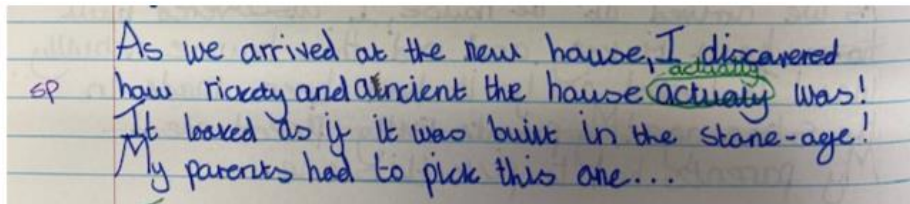 As we arrived at the new house, I discovered
actually
sp how rickety and aincient the house actualy was!
It looked as if it was built in the stone-age!
My parents had to pick this one...